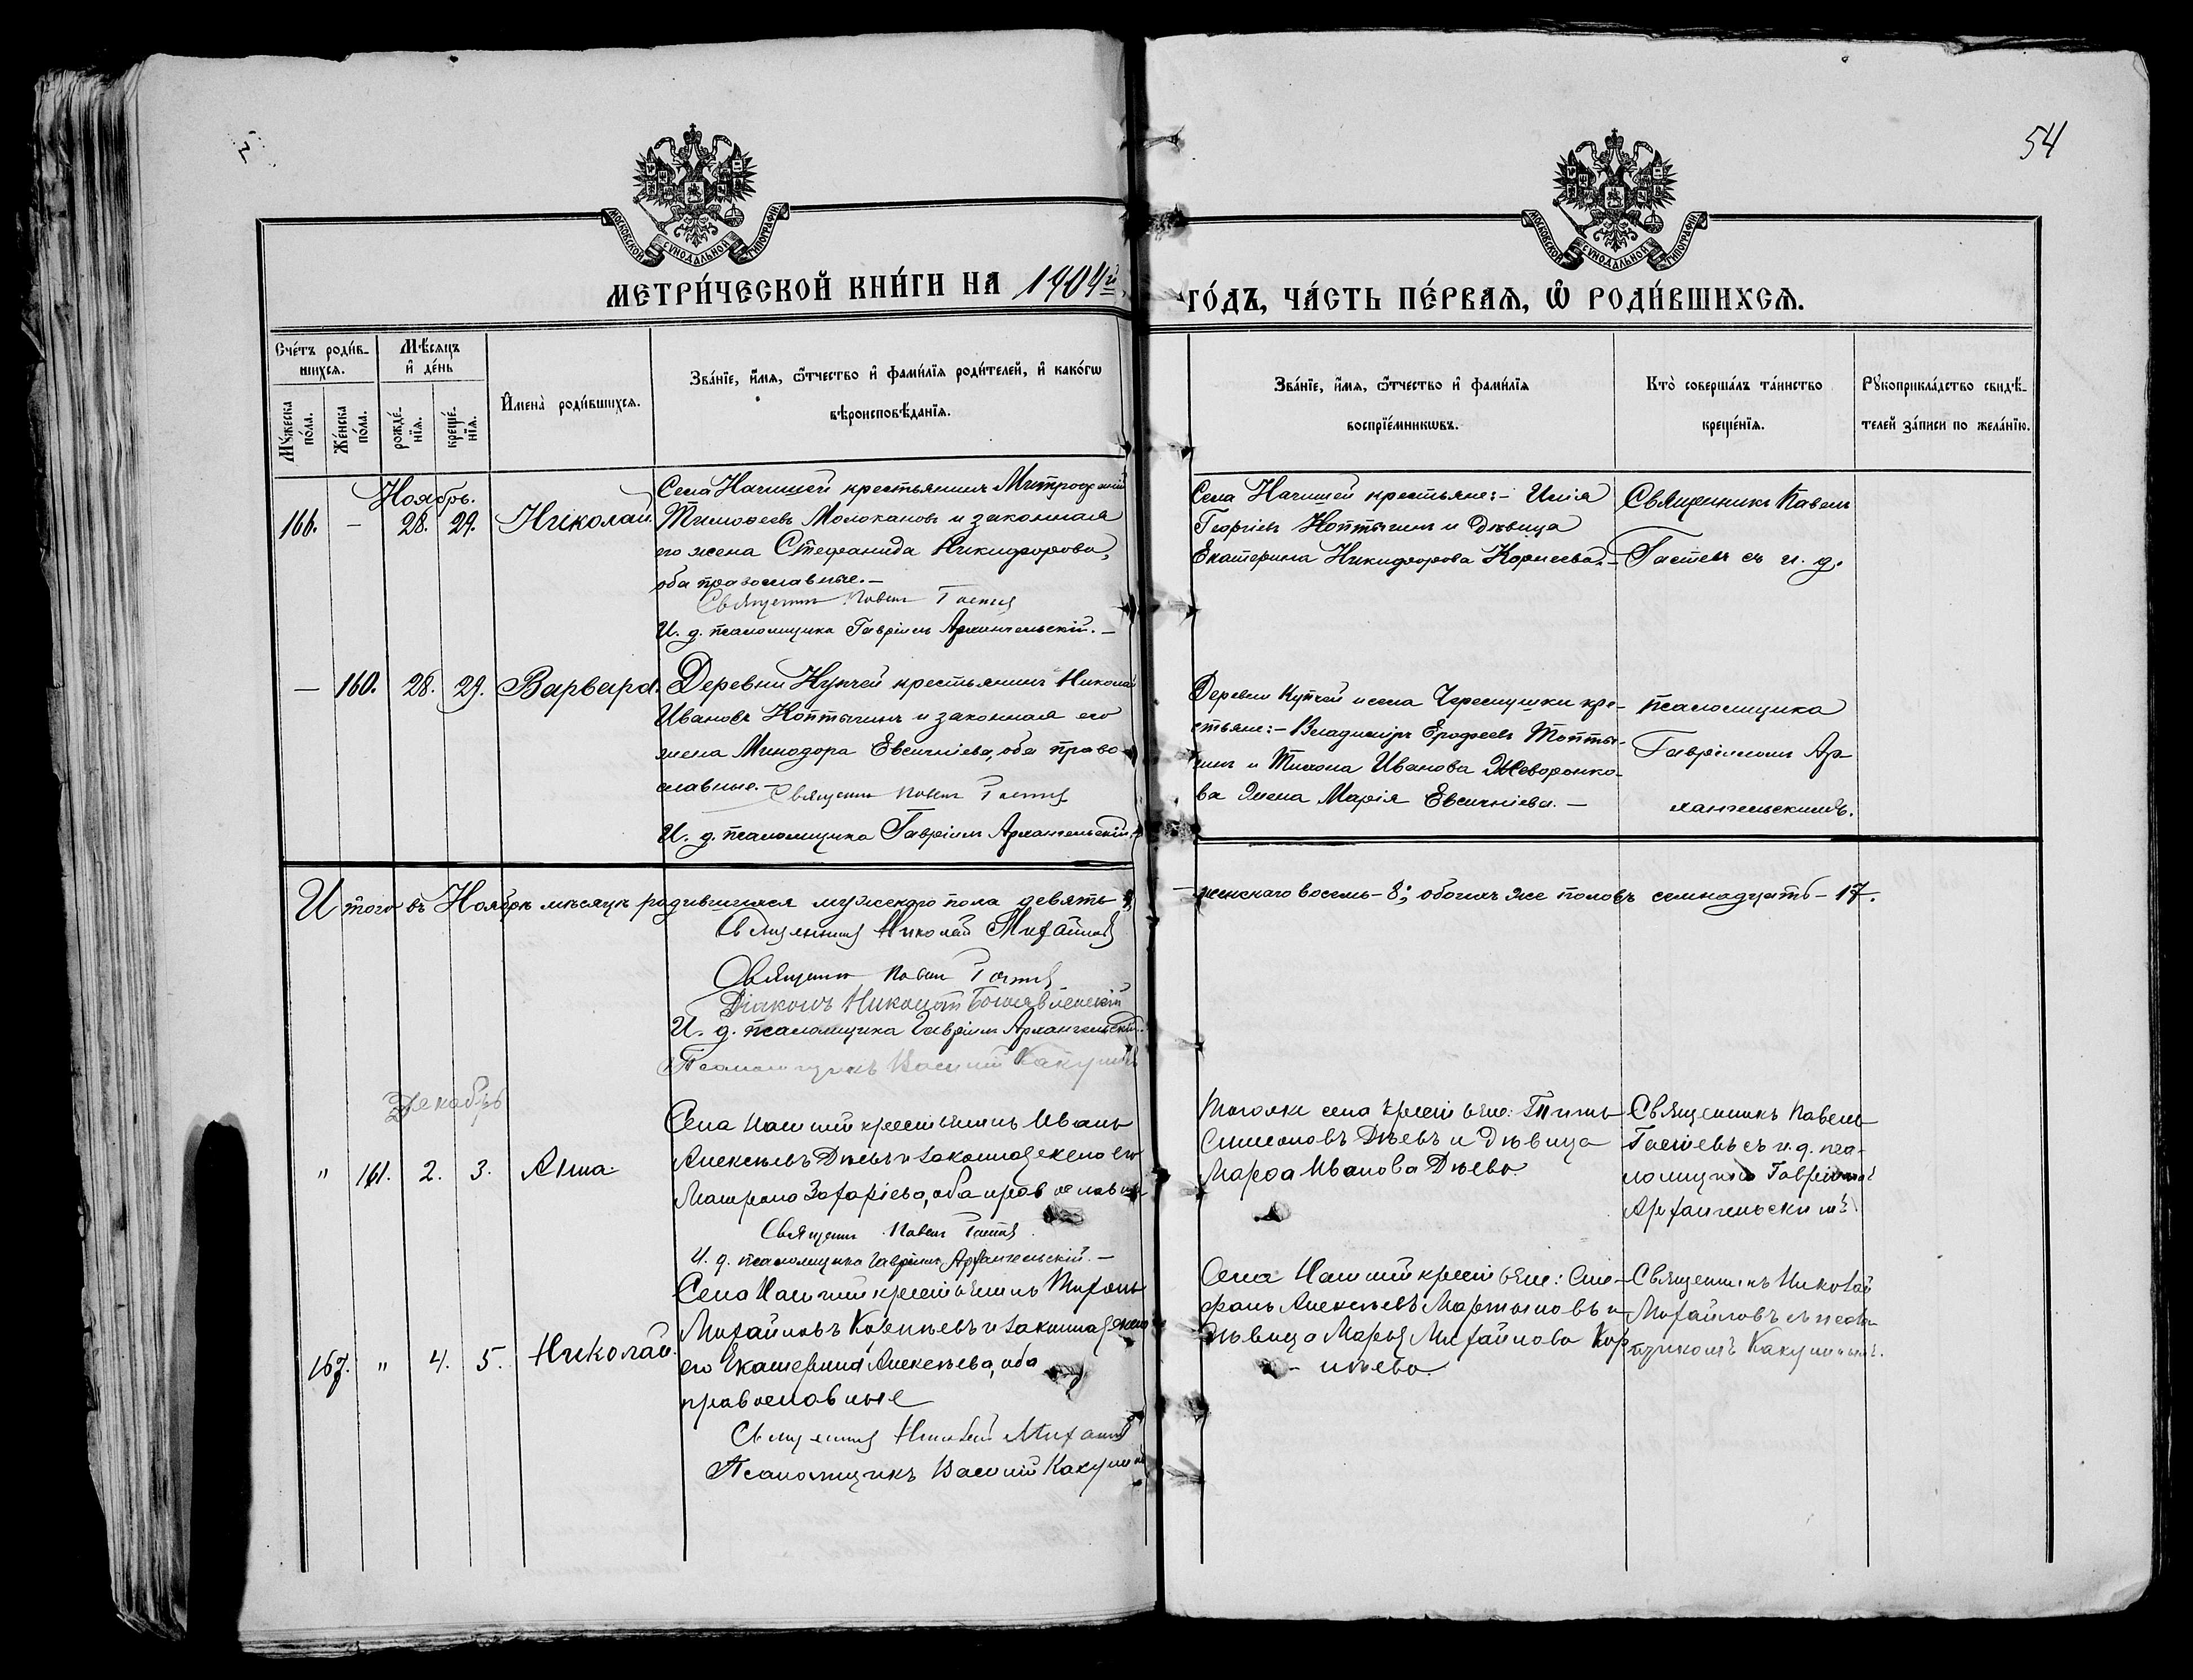 54
МОСКОВСКОЙ СѴНОДАЛЬНОЙ ТИПОГРАФІИ
МОСКОВСКОЙ СѴНОДАЛЬНОЙ ТИПОГРАФІИ
МЕТРИ́ЧЕСКОЙ КНИ́ГИ НА 1904й
ГО́ДЪ, ЧА́СТЬ ПЕ́РВАѦ, Ѡ҆ РОДИ́ВШИХСѦ.
Сче́тъ роди́в-
шихсѧ.
Мѣ́сѧцъ
и҆ де́нь
Мꙋ́жеска
по́ла.
Же́нска
по́ла.
рожде́-
нїѧ.
креще́-
нїѧ.
И҆мена̀ роди́вшихсѧ.
Зва́нїе, и҆́мѧ, ѻ҆́тчество и҆ фами́лїѧ роди́телей, и҆ како́гѡ
вѣроисповѣ́данїѧ.
Зва́нїе, и҆́мѧ, ѻ҆́тчество и҆ фами́лїѧ
воспрїе́мникѡвъ.
Кто̀ соверша́лъ та́инство
креще́нїѧ.
Рꙋкоприкла́дство свидѣ́-
телей за́писи по жела́нїю.
Ноябрь.
166. — 28. 29. Николай.
Села Начишей крестьянинъ Митрофанъ
Тимоѳеевъ Молокановъ и законная
его жена Стефанида Никифорова,
оба православные.—
Священникъ Павелъ Гастевъ
И. д. псаломщика Гавріилъ Архангельскій.—
Села Начишей крестьяне:- Илія
Георгіевъ Коптягинъ и дѣвица
Екатерина Никифорова Корнеева.—
Священникъ Павелъ
Гастевъ съ и. д.
— 160. 28. 29. Варвара.
Деревни Купчей крестьянинъ Николай
Ивановъ Коптягинъ и законная его
жена Минодора Евсигніева, оба право-
славные.—
Священникъ Павелъ Гастевъ
И. д. псаломщика Гавріилъ Архангельскій.
Деревни Купчей и села Черемушки кре-
стьяне:- Владиміръ Ерофеевъ Топты-
гинъ и Тихона Иванова Жаворонко-
ва жена Марія Евсигніева.—
псаломщика
Гавріиломъ Ар-
хангельскимъ.
Итого въ Ноябрѣ мѣсяцѣ родившихся мужескаго пола девять 9,
женскаго восемь — 8; обоихъ же половъ семнадцать — 17.
Священникъ Николай Михайловъ
Священникъ Павелъ Гастевъ
Діаконъ Николай Богоявленскій
И. д. псаломщика Гавріилъ Архангельскій.
Псаломщикъ Василій Какушинъ
Декабрь
" 161. 2. 3. Анна.
Села Начишей крестьянинъ Иванъ
Алексѣевъ Дѣевъ и законная жена его
Матрона Захаріева, оба православные
Священникъ Павелъ Гастевъ
И. д. псаломщика Гавріилъ Архангельскій.—
Того же села крестьяне: Титъ
Симеоновъ Дѣевъ и дѣвица
Марѳа Иванова Дѣева
Священникъ Павелъ
Гастевъ съ и. д. пса-
ломщика Гавріиломъ
Архангельскимъ
167. " 4. 5. Николай.
Села Начишей крестьянинъ Тихонъ
Михайловъ и законная жена
его Екатерина Алексѣева, оба
православные
Священникъ Николай Михайловъ
Псаломщикъ Василій Какушинъ
Села Начишей крестьяне: Сте-
фанъ Алексѣевъ Мартыновъ и
дѣвица Марья Михайлова Кор-
нѣева.
Священникъ Николай
Михайловъ съ псалом-
щикомъ Какушинымъ.